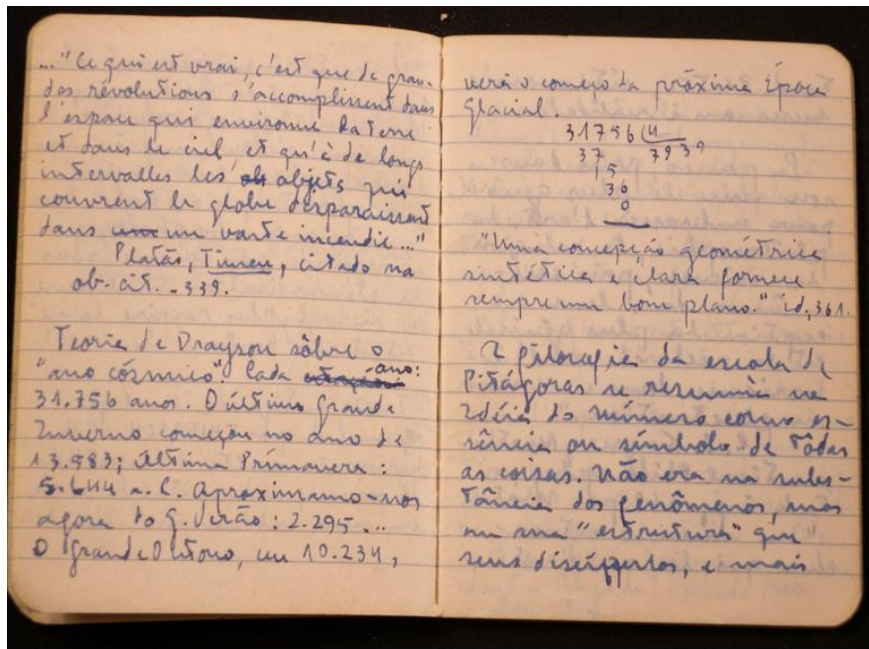 ..."Ce qui est vrai, c'est que de gran-
des révolutions s'accomplissent dans
l'espace qui environne la terre
et dans le ciel, et qu'à de longs
intervalles les objets qui
couvrent le globe disparaissent
dans un vaste incendie..."
Platão, Timeu, citado na
ob. cit. - 339.
Teoria de Drayson sôbre o
"ano cósmico". Cada ano:
31.756 anos. O último Grande
Inverno começou no ano de
13.583; última Primavera:
5.644 a. C. Aproximamo-nos
agora do G. Verão: 2.295...
O Grande Outono, em 10.234,
verá o começo da próxima Época
Glacial.
31756 4
37 7939
15
36
0
"Uma concepção geométrica
sintética e clara fornece
sempre um bom plano." id, 361.
A filosofia da escola de
Pitágoras se resumia na
Idéia do número como es-
sência ou símbolo de tôdas
as coisas. Não era na subs-
tância dos fenômenos, mas
na sua "estrutura" que
seus discípulos, e mais